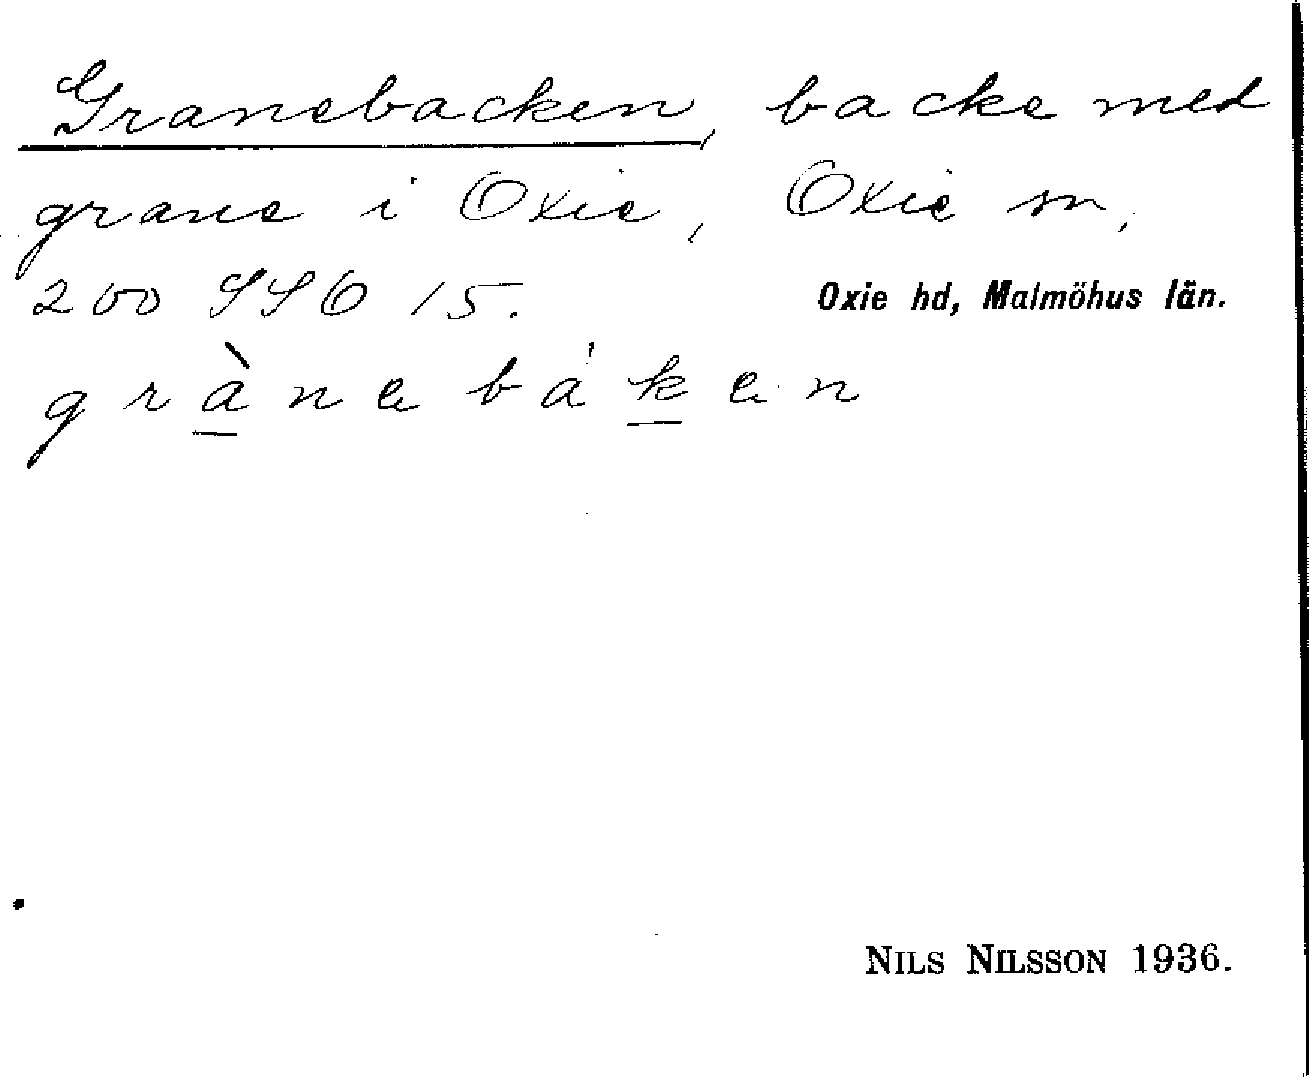 Granebacken, backe med
grane i Oxie, Oxie sn,
200 SSO 15. Oxie hd, Malmöhus län.
grànebáken
NILS NILSSON 1936.